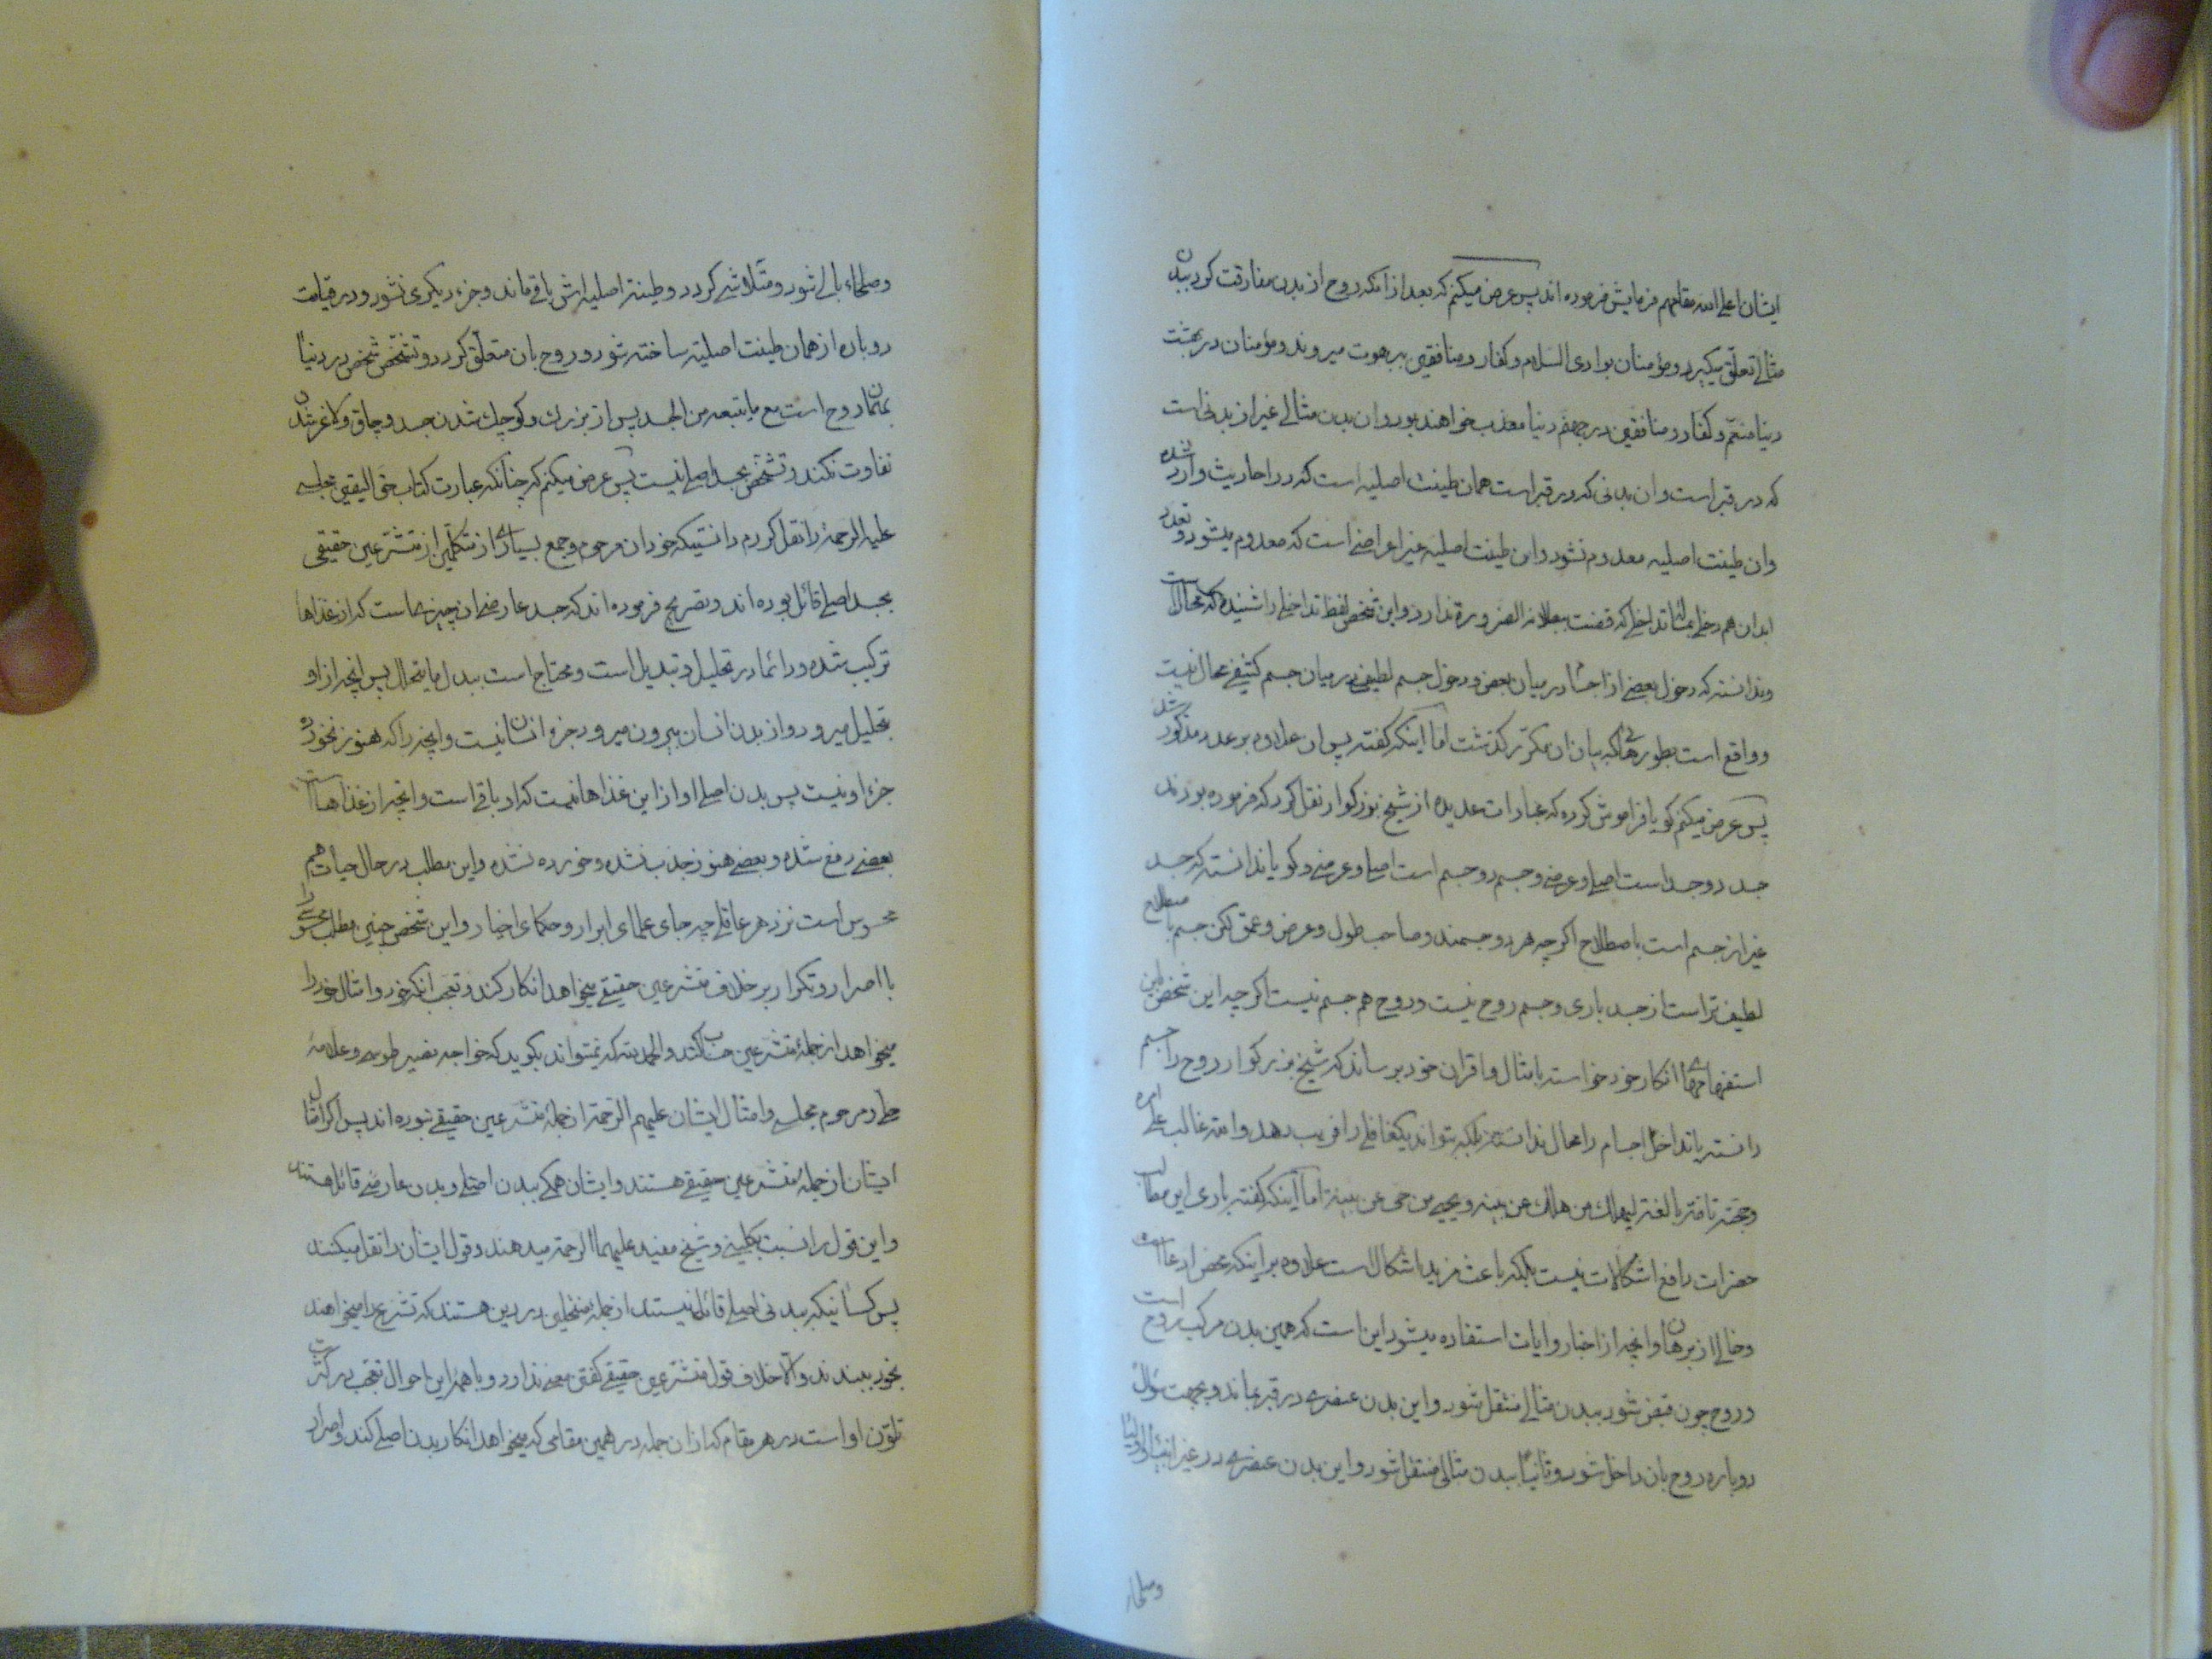 ایشان اعلی الله مقامهم فرمایش فرموده اند پس عرض میکنم که بعد از آنکه روح از بدن مفارقت کرد ببدن
مثالی تعلق میگیرد و مؤمنان بوادی السلام و کفار و منافقین ببرهوت میروند و مؤمنان در بهشت
دنیا متنعم و کفار و منافقین در جهنم دنیا معذب خواهند بود و آن بدن مثالی غیر از بدنی است
که در قبر است و آن بدنی که در قبر است همان طینت اصلیه است که در احادیث وارد شده
و آن طینت اصلیه معدوم نشود و این طینت اصلیه غیر اعراضی است که معدوم میشود و تعدد
ابدان هم دخلی بمسئله تداخلی که قضت ببطلانه الضرورة ندارد و این شخص لفظ تداخلی را شنیده که محال است
و ندانسته که دخول بعضی از اجسام در میان بعض و دخول جسم لطیفی در میان جسم کثیفی محال نیست
و واقع است بطورهائی که بیان آن مکرر گذشت اما اینکه گفته پس آن علاوه بر عدد مذکور شد
پس عرض میکنم گویا فراموش کرده که عبارات عدیده از شیخ بزرگوار نقل کرد که فرموده بودند
جسد دو جسد است اصلی و عرضی و جسم دو جسم است اصلی و عرضی و گویا ندانسته که جسد
غیر از جسم است باصطلاح اگرچه هر دو جسمند و صاحب طول و عرض و عمق لکن جسم باصطلاح
لطیف تر است از جسد باری و جسم روح نیست و روح هم جسم نیست اگرچه این شخص باین
استفهامهای انکار خود خواسته بامثال و اقران خود برساند که شیخ بزرگوار روح را جسم
دانسته یا تداخل اجسام را محال ندانسته بلکه بتواند یکغافلی را فریب دهد و الله غالب علی امره
و حجته تامة بالغة لیهلک من هلک عن بینة و یحیی من حی عن بینة اما اینکه گفته باری این مطالب
حضرات رافع اشکالات نیست بلکه باعث مزید اشکال است علاوه بر اینکه محض ادعا است
و خالی از برهان و آنچه از اخبار و ایات استفاده میشود این است که همین بدن مرکب روح است
و روح چون قبض شود ببدن مثالی منتقل شود و این بدن عنصری در قبر بماند و بجهت سؤال
دوباره روح بان داخل شود و ثانیا ببدن مثالی منتقل شود و این بدن عنصری در غیر انبیاء و اولیا
وصلحاء
وصلحاء بالی شود و متلاشی گردد و طینة اصلیه اش باقی ماند و جزء دیگری نشود و در قیامت
دوباره از همان طینت اصلیه ساخته شود و روح بان متعلق گردد و تشخص شخص در دنیا
بهمان روح است مع ما یتبعه من الجسد پس از بزرگ و کوچک شدن جسد و چاق و لاغر شدن
تفاوت نکند و تشخص بجسد اصلی نیست پس عرض میکنم که چنانکه عبارت کتاب حق الیقین مجلسی
علیه الرحمة را نقل کردم دانستیکه خود آن مرحوم و جمع بسیاری از متکلمین از متشرعین حقیقی
بجسد اصلی قائل بوده اند و تصریح فرموده اند که جسد عارضی آن چیزیها است که از غذاها
ترکیب شده و دائما در تحلیل و تبدیل است و محتاج است ببدل ما یتحلل پس آنچه از او
بتحلیل میرود و از بدن انسان بیرون میرود جزء انسان نیست و آنچه را که هنوز نخورده
جزء او نیست پس بدن اصلی او از این غذاها نیست که او باقی است و آنچه از غذاها است
بعضی دفع شده و بعضی هنوز جذب نشده و خورده نشده و این مطلب در حال حیات هم
محسوس است نزد هر عاقلی چه جای علمای ابرار و حکمای اخیار و این شخص چنین مطلب محسوسی را
با اصرار و تکرار بر خلاف متشرعین حقیقی میخواهد انکار کند و تعجب آنکه خود و امثال خود را
میخواهد از جملهٔ متشرعین حساب کند و الحمد لله که نمیتواند بگوید که خواجه نصیر طوسی و علامهٔ
حلی و مرحوم مجلسی و امثال ایشان علیهم الرحمة از جملهٔ متشرعین حقیقی نبوده اند پس اگر امثال
ایشان از جملهٔ متشرعین حقیقی هستند و ایشان همگی ببدن اصلی و بدن عارضی قائل هستند
و این قول را نسبت بکلینی و شیخ مفید علیهما الرحمة میدهند و قول ایشان را نقل میکنند
پس کسانیکه ببدنی اصلی قائل نیستند از جملهٔ منتحلین در دین هستند که تشرع را میخواهند
بخود ببندند و الا خلاف قول متشرعین حقیقی گفتن معنی ندارد و با همهٔ این احوال تعجب در کثرت
تلون او است در هر مقام که از آن جمله در همین مقامی که میخواهد انکار بدن اصلی کند و اصرار